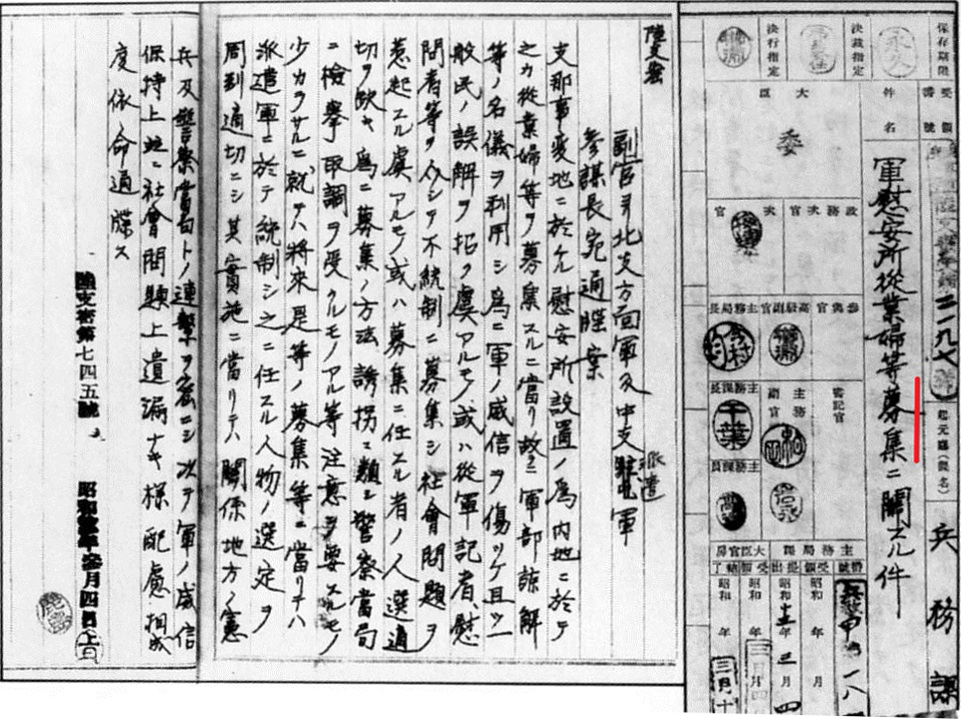 保存期限
永久
決裁指定
決行指定
受領番號
件名
大臣
委
軍慰安所從業婦等募集ニ關スル件
兵務課
政務次官
次官
參與官
高級副官
主務局長
主務課長
主務副官
主務課員
書記官
今村
千葉
主務局課
大臣官房
昭和 年 月
昭和十三年三月四
陸支密
副官ヨリ北支方面軍及中支派遣軍
參謀長宛通牒案
支那事變地ニ於ケル慰安所設置ノ爲内地ニ於テ
之カ從業婦等ヲ募集スルニ當リ故ラニ軍部諒解
等ノ名儀ヲ利用シ爲ニ軍ノ威信ヲ傷ツケ且ツ一
般民ノ誤解ヲ招ク虞アルモノ或ハ從軍記者、慰
問者等ヲ介シテ不統制ニ募集シ社會問題ヲ
惹起スル虞アルモノ或ハ募集ニ任スル者ノ人選適
切ヲ欠キ爲ニ募集ノ方法誘拐ニ類シ警察當局
ニ檢擧取調ヲ受クルモノアル等注意ヲ要スルモノ
少カラサルニ就テハ將來是等ノ募集等ニ當リテハ
派遣軍ニ於テ統制シ之ニ任スル人物ノ選定ヲ
周到適切ニシ其實施ニ當リテハ關係地方ノ憲
兵及警察當局トノ連繫ヲ密ニシ次テ軍ノ威信
保持上並ニ社會問題上遺漏ナキ樣配慮相成
度依命通牒ス
陸支密第七四五號 昭和拾參年參月四日